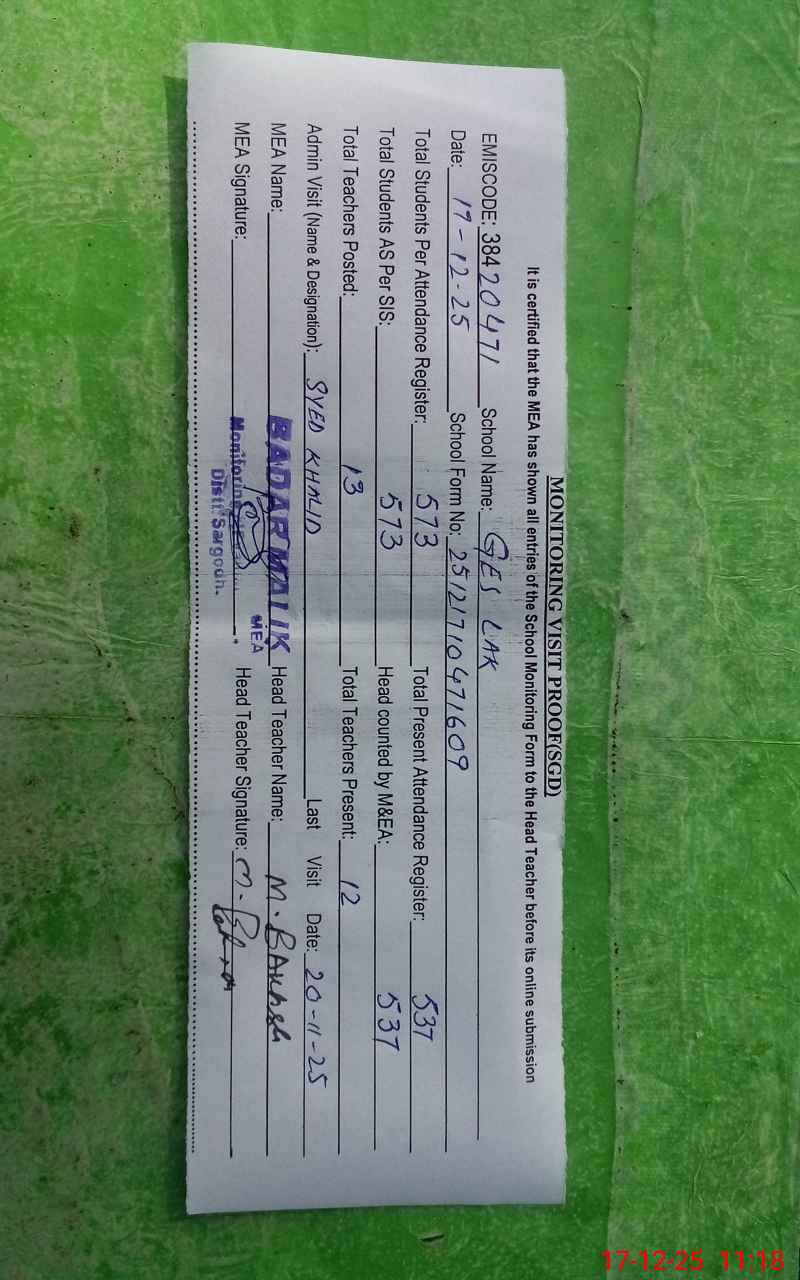 MONITORING VISIT PROOF(SGD)
It is certified that the MEA has shown all entries of the School Monitoring Form to the Head Teacher before its online submission
EMISCODE: 38420471 School Name: GES LAK
Date: 17-12-25 School Form No: 25121710471609
Total Students Per Attendance Register: 573 Total Present Attendance Register: 537
Total Students AS Per SIS: 573 Head counted by M&EA: 537
Total Teachers Posted: 13 Total Teachers Present: 12
Admin Visit (Name & Designation): SYED KHALID Last Visit Date: 20-11-25
MEA Name: BADAR MALIK MEA Head Teacher Name: M. BAKHSH
MEA Signature: Monitoring Head Teacher Signature: M.
Distt. Sargodh.
17-12-25 11:18